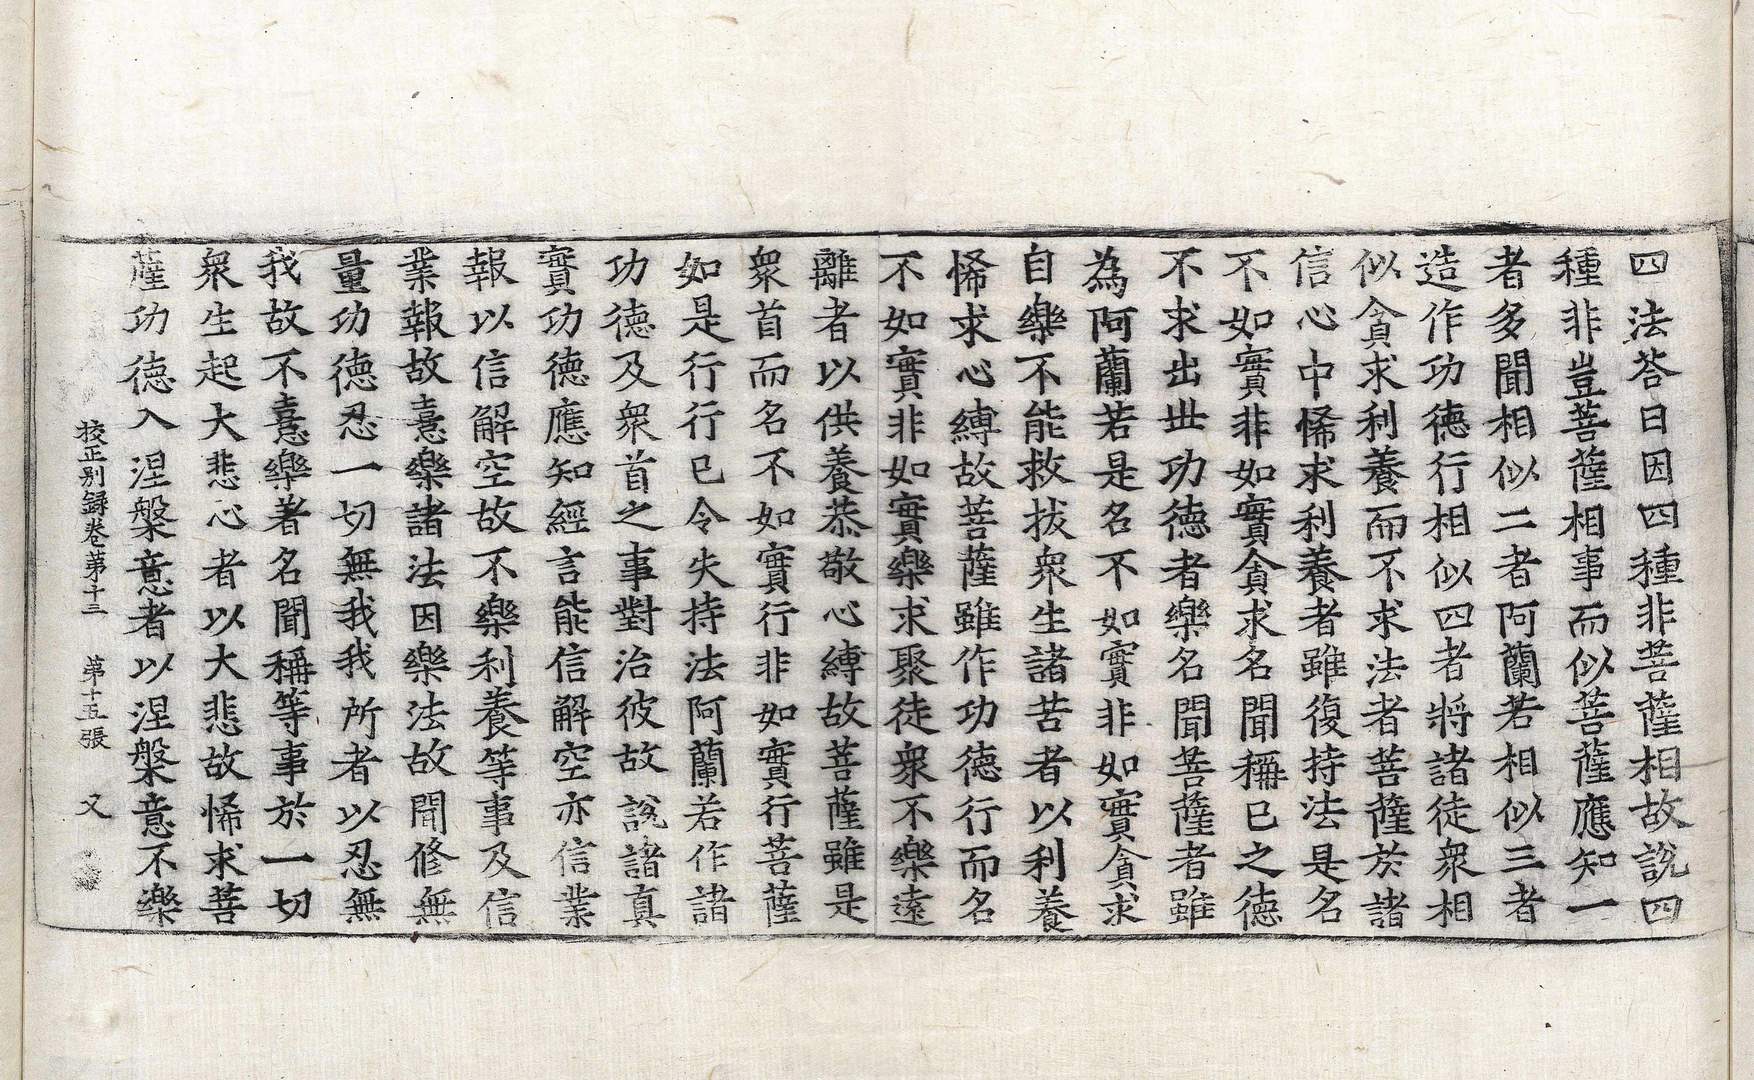 四法荅曰因四種非菩薩相故說四
種非豈菩薩相事而似菩薩應知一
者多聞相似二者阿蘭若相似三者
造作功德行相似四者將諸徒衆相
似貪求利養而不求法者菩薩於諸
信心中悕求利養者雖復持法是名
不如實非如實貪求名聞稱已之德
不求出世功德者樂名聞菩薩者雖
為阿蘭若是名不如實非如實貪求
自樂不能救拔衆生諸苦者以利養
悕求心縛故菩薩雖作功德行而名
不如實非如實樂求聚徒衆不樂遠
離者以供養恭敬心縛故菩薩雖是
衆首而名不如實行非如實行菩薩
如是行行已令失持法阿蘭若作諸
功德及衆首之事對治彼故說諸真
實功德應知經言能信解空亦信業
報以信解空故不樂利養等事及信
業報故憙樂諸法因樂法故聞修無
量功德忍一切無我我所者以忍無
我故不憙樂著名聞稱等事於一切
衆生起大悲心者以大悲故悕求菩
薩功德入涅槃意者以涅槃意不樂
挍正別録卷苐十三 第十五張 又